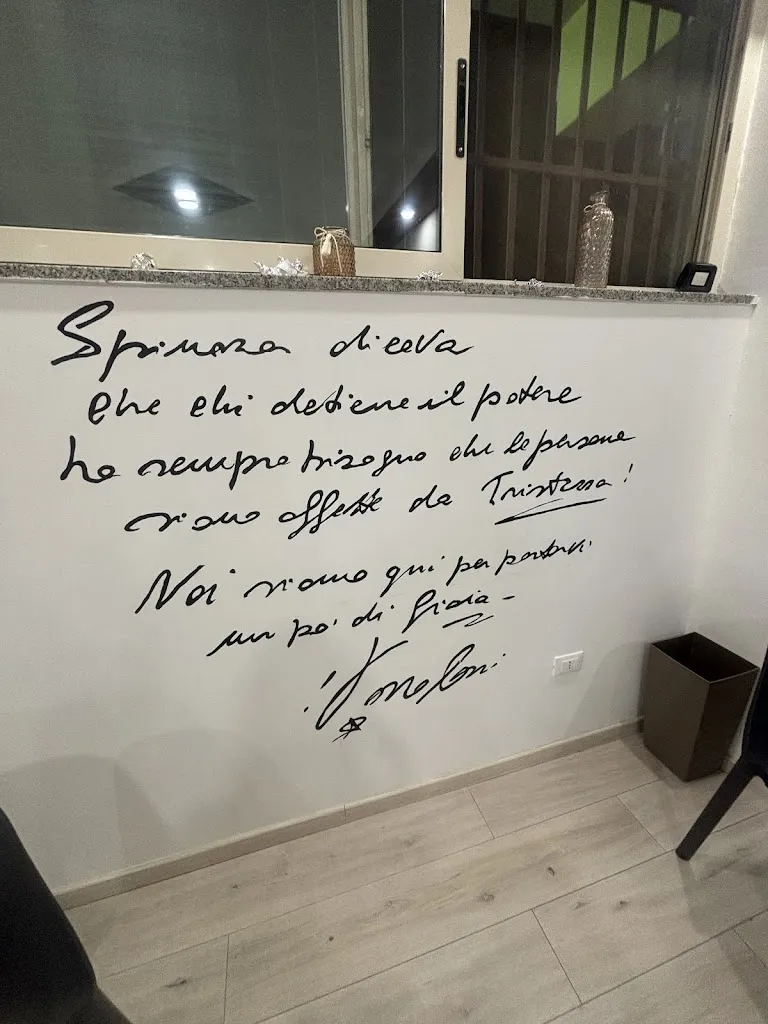 Spinoza diceva
che chi detiene il potere
ha sempre bisogno che le persone
siano affette da Tristezza!
Noi siamo qui per portarvi
un po' di Gioia -